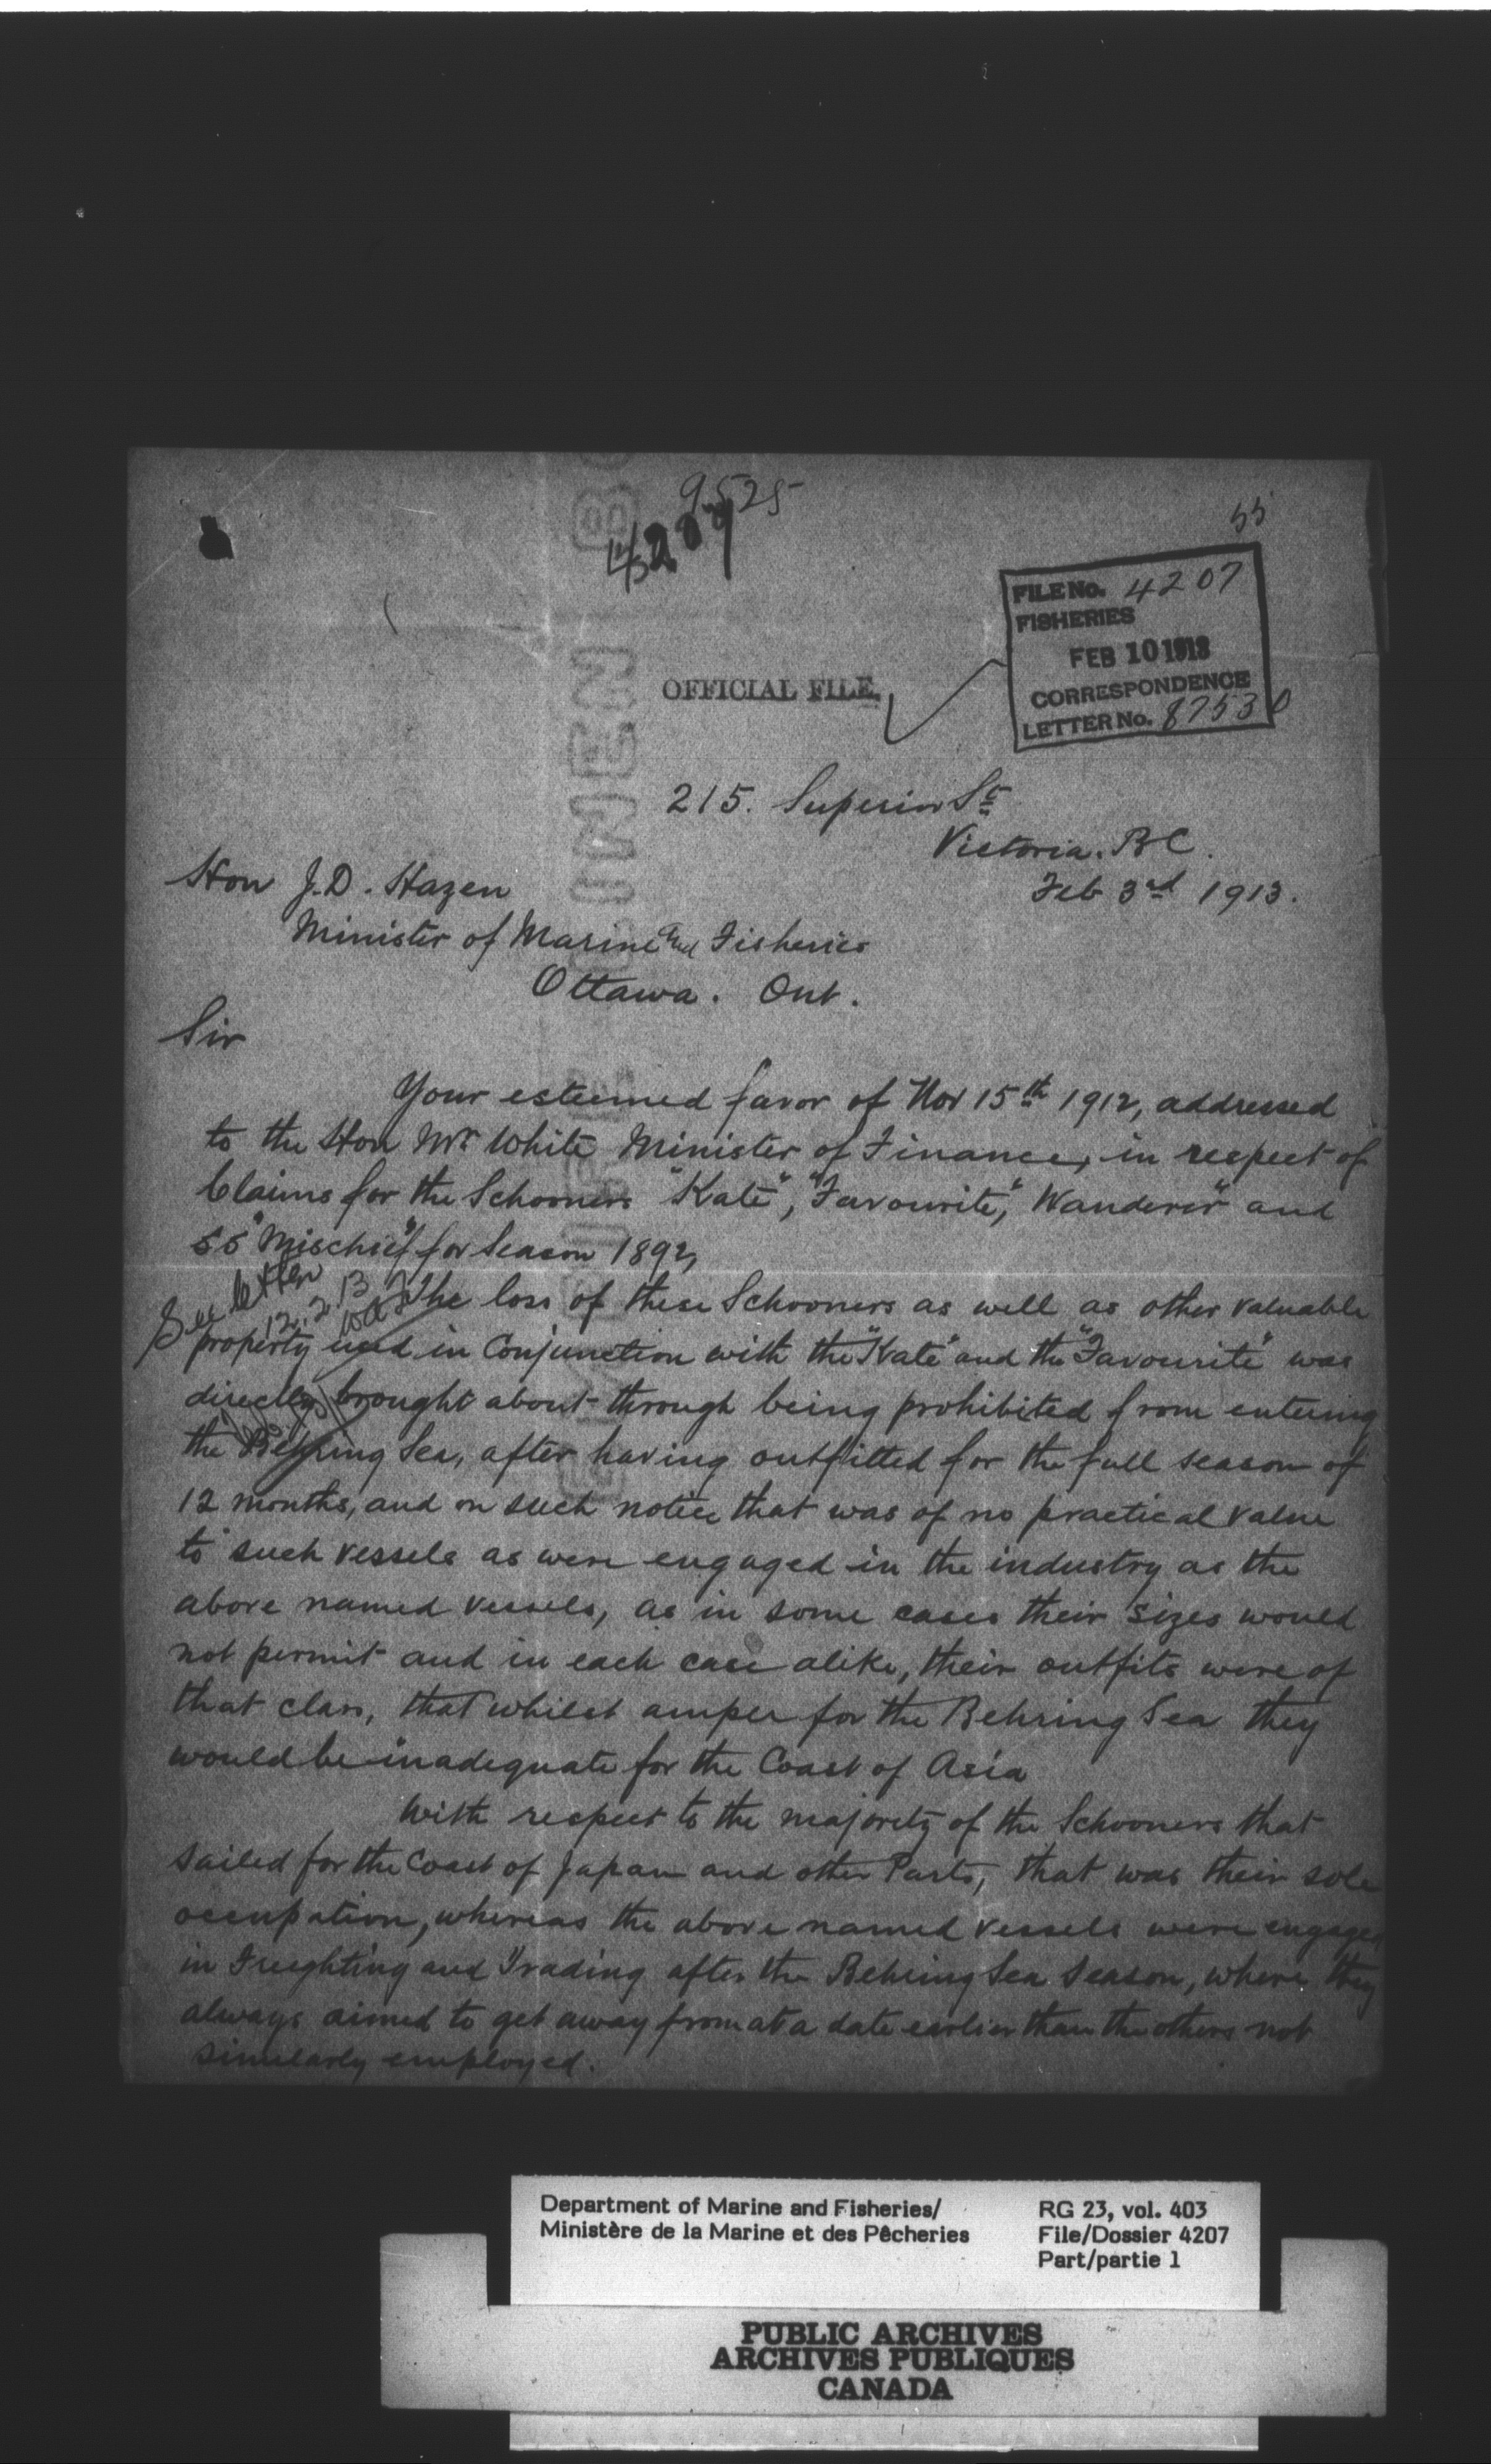 9525
4207
55
FILE No. 4207
FISHERIES
FEB 10 1913
CORRESPONDENCE
LETTER No. 87530
OFFICIAL FILE.
215. Superior St
Victoria. BC.
Feb 3rd 1913.
Hon J.D. Hazen
Minister of Marine and Fisheries
Ottawa. Ont.
Sir
Your esteemed favor of Nov 15th 1912, addressed
to the Hon Mr White Minister of Finance, in respect of
Claims for the Schooners "Kate", "Favourite", "Wanderer" and
SS "Mischief" for Season 1892,
See letter
12.2.13
The loss of these Schooners as well as other valuable
property used in Conjunction with the "Kate" and the "Favourite" was
directly brought about through being prohibited from entering
the Behring Sea, after having outfitted for the full season of
12 months, and on such notice that was of no practical value
to such vessels as were engaged in the industry as the
above named vessels, as in some cases their sizes would
not permit and in each case alike, their outfits were of
that class, that whilst ample for the Behring Sea they
would be inadequate for the Coast of Asia
With respect to the majority of the Schooners that
sailed for the Coast of Japan and other Parts, that was their sole
occupation, whereas the above named vessels were engaged
in Freighting and Trading after the Behring Sea Season, where they
always aimed to get away from at a date earlier than the others not
similarly employed.
Department of Marine and Fisheries/
Ministère de la Marine et des Pêcheries
RG 23, vol. 403
File/Dossier 4207
Part/partie 1
PUBLIC ARCHIVES
ARCHIVES PUBLIQUES
CANADA